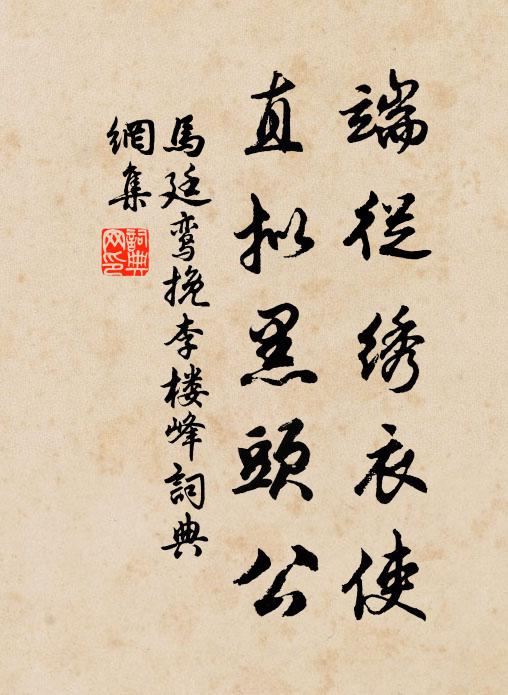 端從绣衣使
直拟黑頭公
馬廷鸾挽李楼峰詞典
網集
詞典
网印